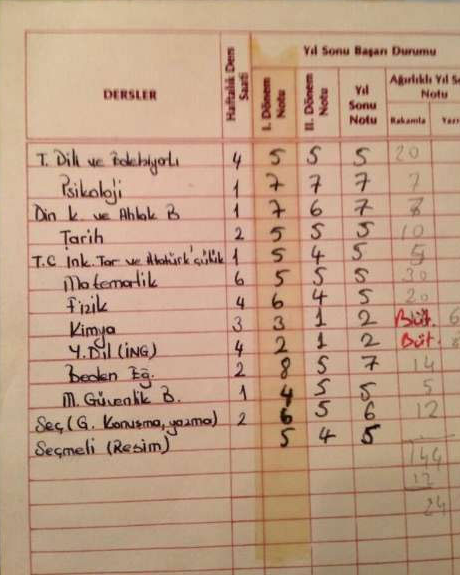 Yıl Sonu Başarı Durumu
DERSLER Haftalık Ders Saati I. Dönem Notu II. Dönem Notu Yıl Sonu Notu Ağırlıklı Yıl S Notu
Rakamla Yazı
T. Dili ve Edebiyatı 4 5 5 5 20
Psikoloji 1 7 7 7 7
Din k. ve Ahlak B 1 7 6 7
Tarih 2 5 5 5 10
T.C İnk. Tar ve Atatürk'çülük 1 5 4 5 5
Matematik 6 5 5 5 30
Fizik 4 6 4 5 20
Kimya 3 3 1 2 Büt. 6
Y. Dil (İNG) 4 2 1 2 Büt. 8
Beden Eğ. 2 8 5 7 14
M. Güvenlik B. 1 4 5 5 5
Seç (G. Konuşma, yazma) 2 6 5 6 12
Seçmeli (Resim) 5 4 5
144
12
24